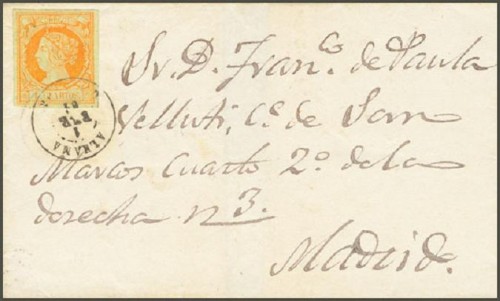 Sr. D. Franco. de Paula
Velluti, Ce. de San
Marcos Cuarto 2o. de la
derecha n 3.
Madrid.
ALHAMA
1